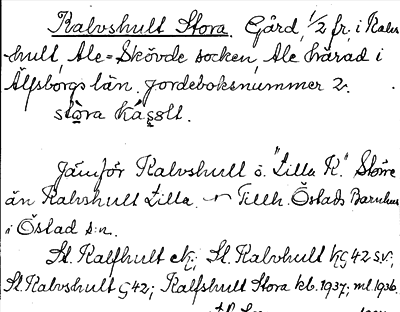 Kalvshult Stora. Gård, 1/2 fr. i Kalvs-
hult, Ale-Skövde socken, Ale härad i
Älfsborgs län. Jordeboksnummer 2.
stòra káss̥lt.
Jämför Kalvshult o. "Lilla K." Större
än Kalvshult Lilla. Tillh. Östads Barnhus
i Östad s:n.
St. Kalfhult ek; St. Kalvhult KG 42 sv;
St. Kalvshult G 42; Kalfshult Stora kb. 1937; ml 1936.